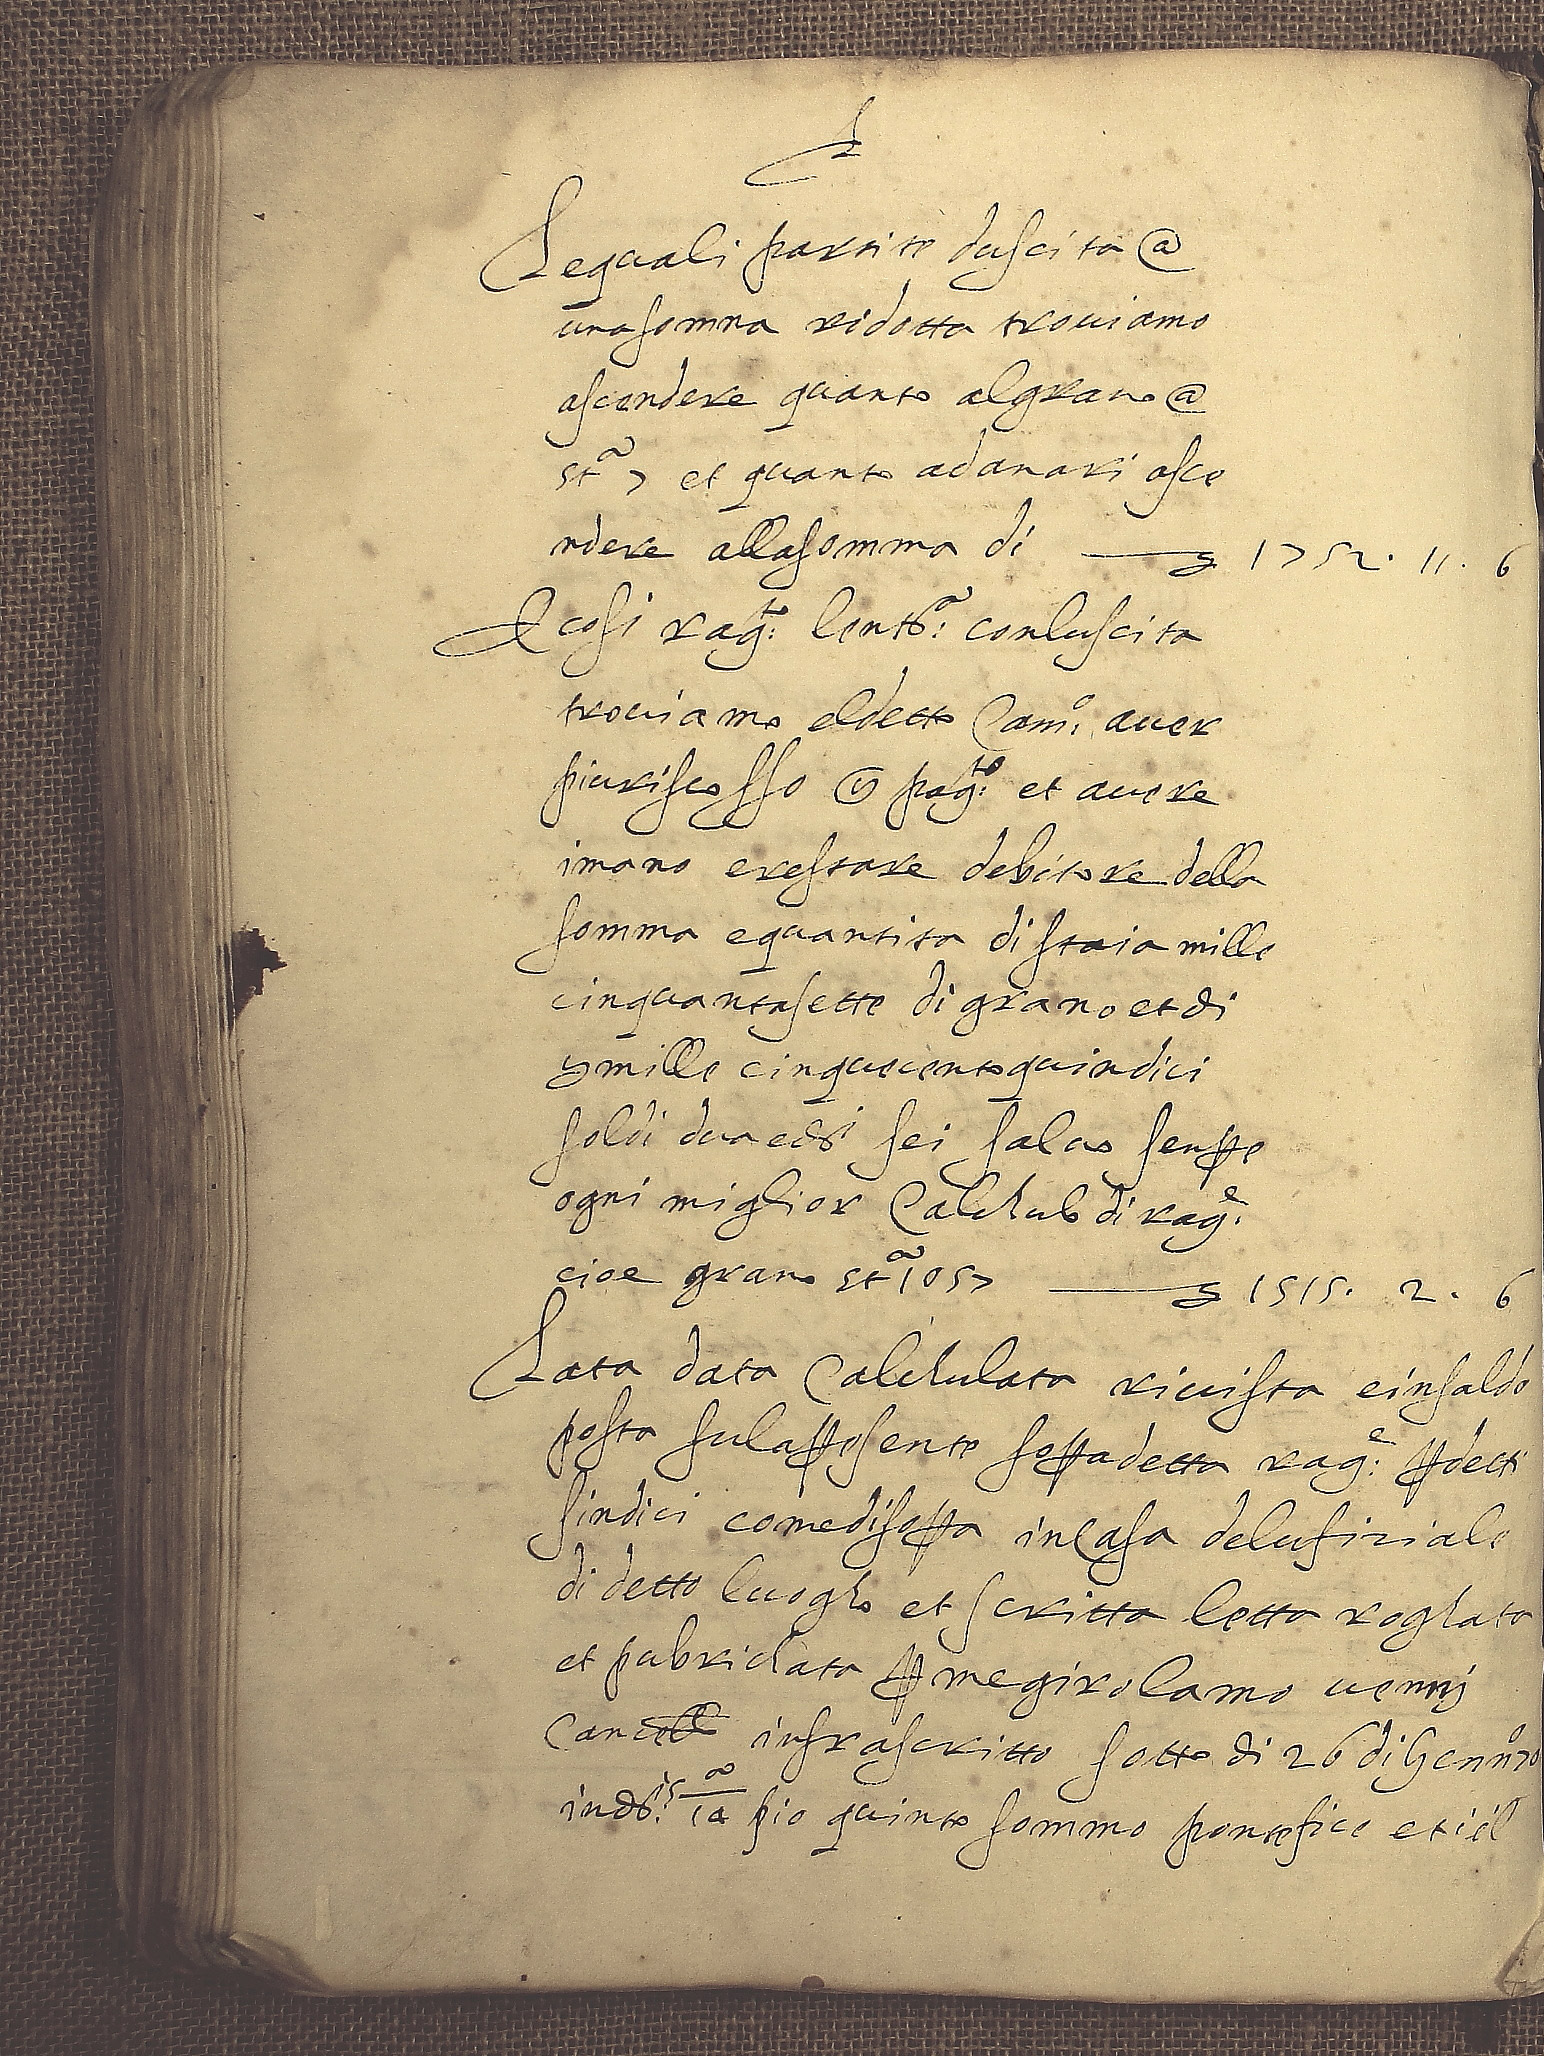 Lequali partite duscita @
una somma ridotta troviamo
ascendere quanto al grano @
sta 7 et quanto adanari asce
ndere alla somma di 1752. 11. 6
E cosi rag.to lentta: conluscita
troviamo eldetto Camo: aver
piu riscosso @ pag.to et avere
imano erestare debitore della
somma equantita di staia mille
cinquantasette di grano et di
mille cinquecento quindici
soldi dua edi sei salvo sempe
ogni miglior Calchulo di rage:
cioe grano sta 1057 1515. 2. 6
Lata data Calchulata rivista einsaldo
posta sula presente sopradetta rage: p detti
sindici comedisopra in Casa delufiziale
di detto luogho et scritta letta roghata
et pubrichata p me girolamo vennij
Cancell infrascritto sotto di 26 di Gennro 70
indi: pio quinto sommo pontefice et il